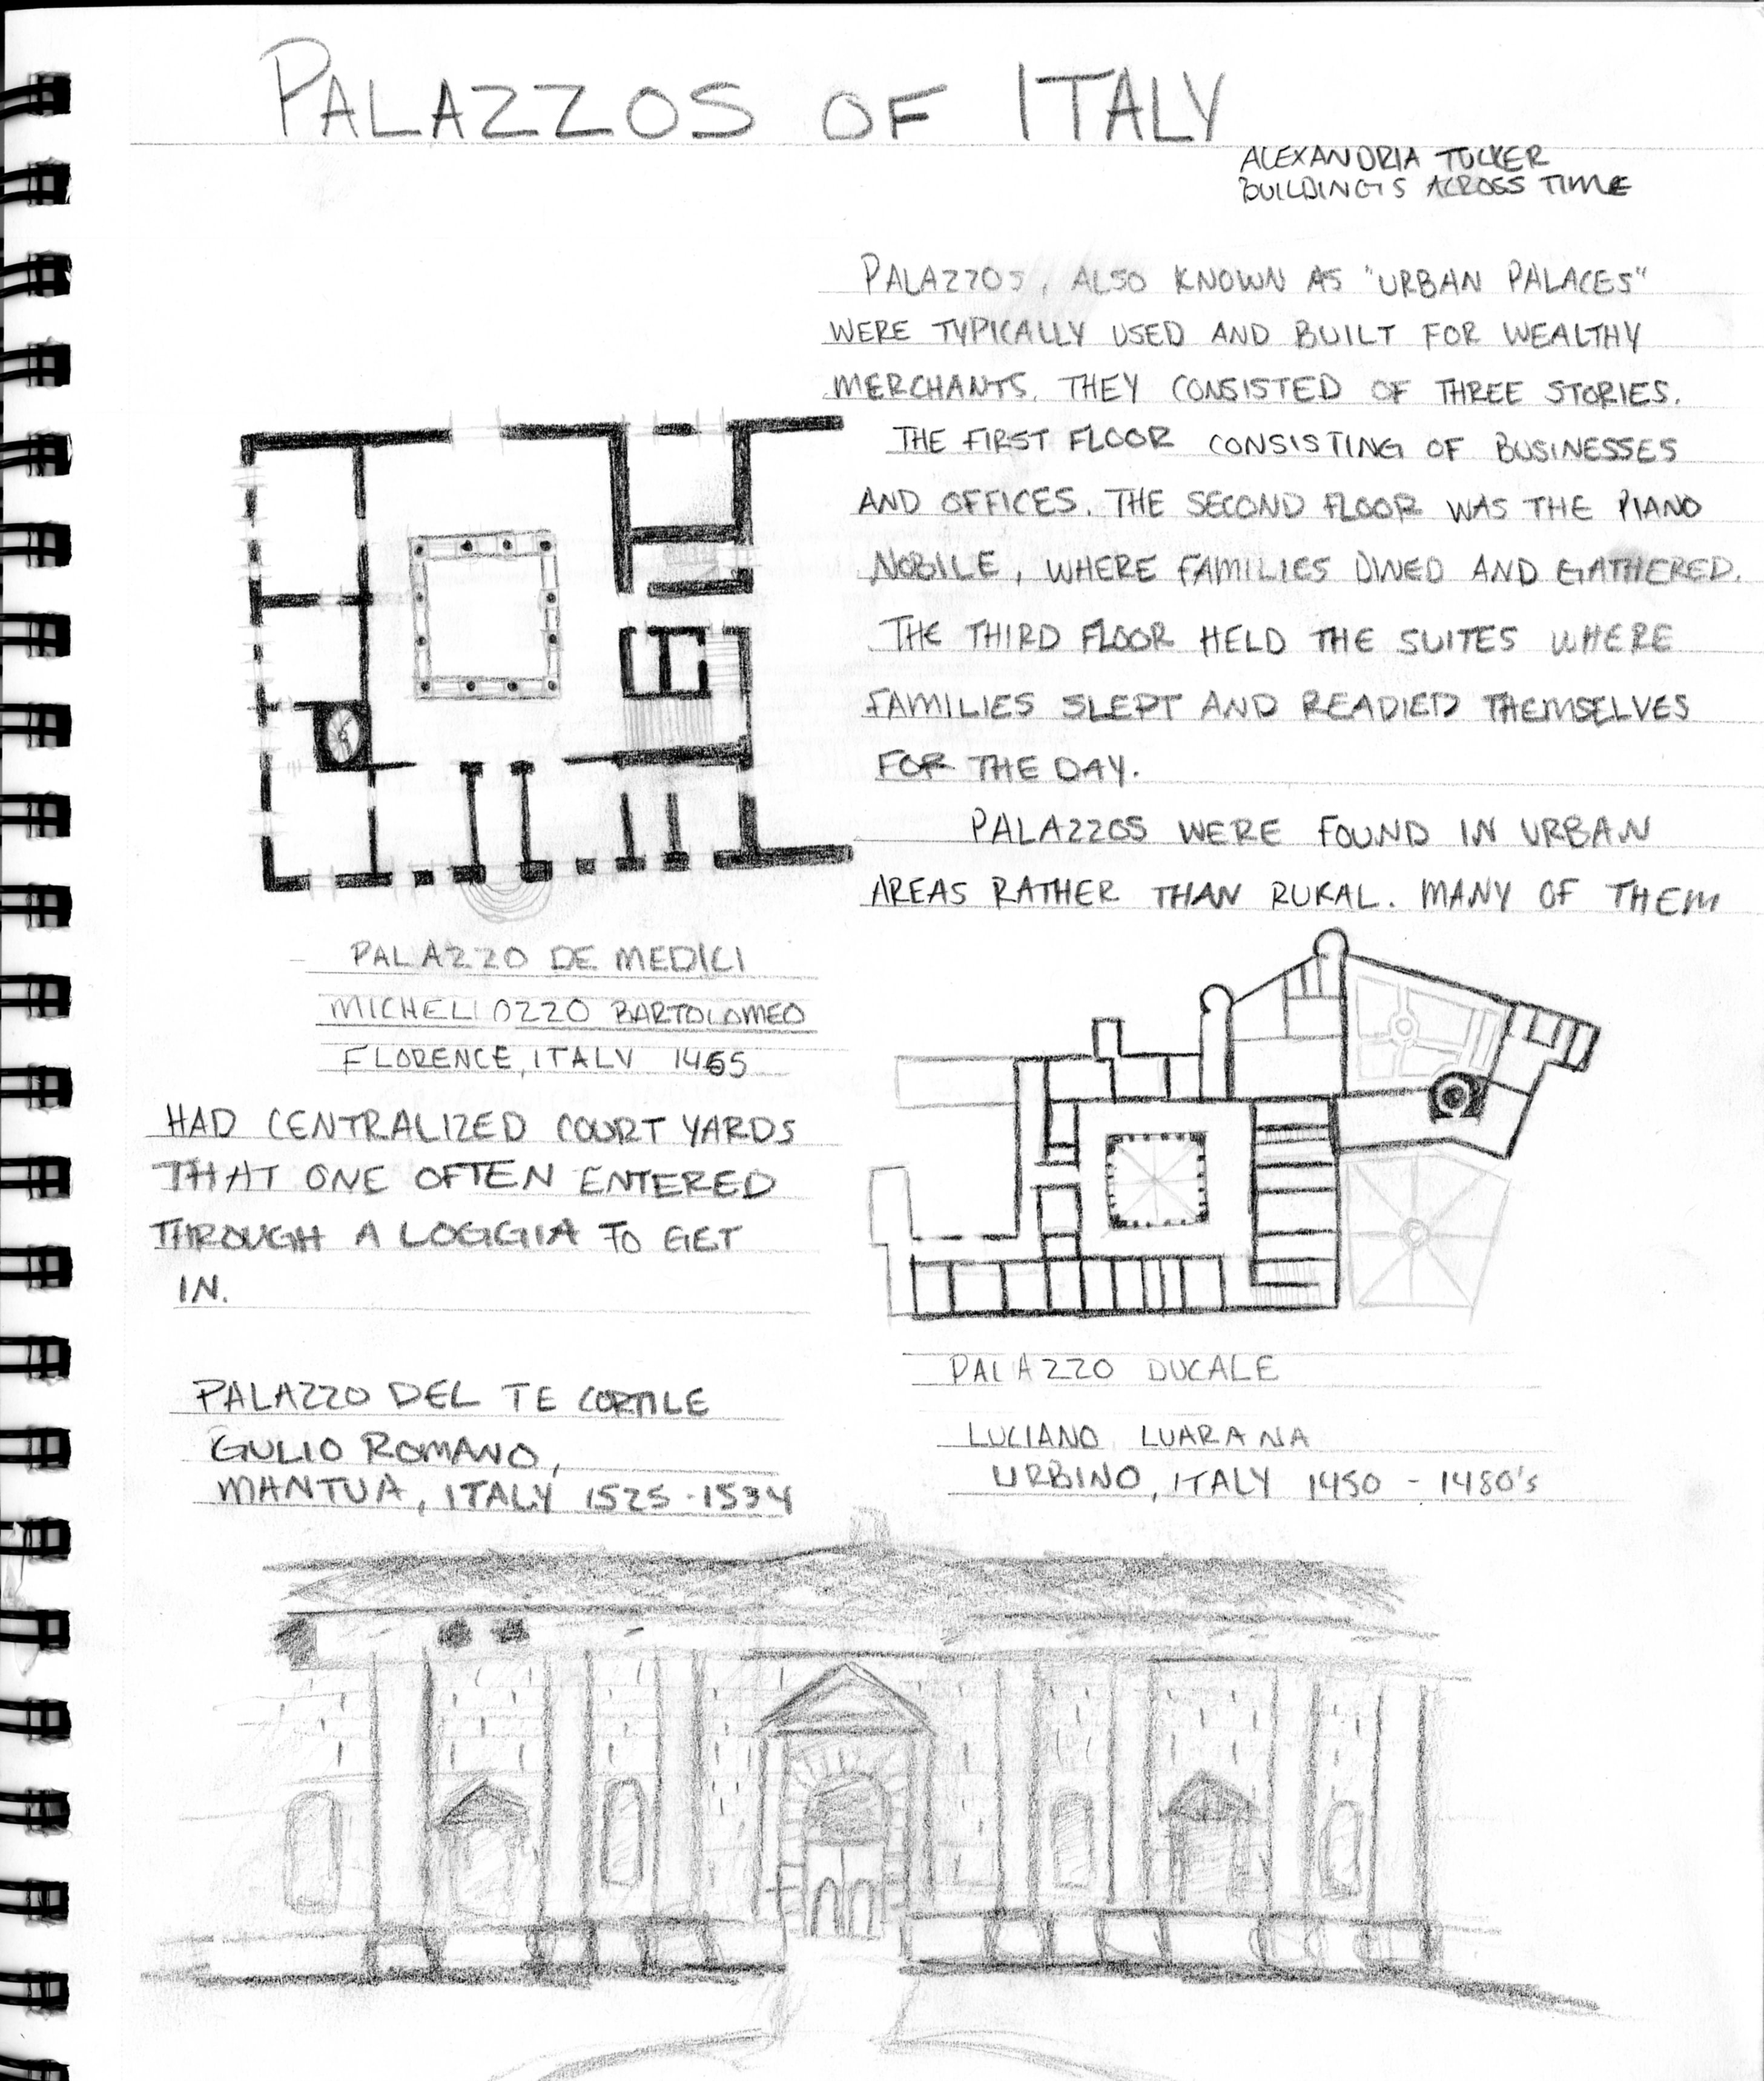 PALAZZOS OF ITALY
ALEXANDRIA TUCKER
BUILDINGS ACROSS TIME
PALAZZOS, ALSO KNOWN AS "URBAN PALACES"
WERE TYPICALLY USED AND BUILT FOR WEALTHY
MERCHANTS. THEY CONSISTED OF THREE STORIES.
THE FIRST FLOOR CONSISTING OF BUSINESSES
AND OFFICES. THE SECOND FLOOR WAS THE PIANO
NOBILE, WHERE FAMILIES DINED AND GATHERED.
THE THIRD FLOOR HELD THE SUITES WHERE
FAMILIES SLEPT AND READIED THEMSELVES
FOR THE DAY.
PALAZZOS WERE FOUND IN URBAN
AREAS RATHER THAN RURAL. MANY OF THEM
PALAZZO DE MEDICI
MICHELLOZZO BARTOLOMEO
FLORENCE, ITALY
HAD CENTRALIZED COURT YARDS
THAT ONE OFTEN ENTERED
THROUGH A LOGGIA TO GET
IN.
PALAZZO DUCALE
LUCIANO LUARANA
URBINO, ITALY 1450 - 1480's
PALAZZO DEL TE CORTILE
GULIO ROMANO,
MANTUA, ITALY 1525-1534